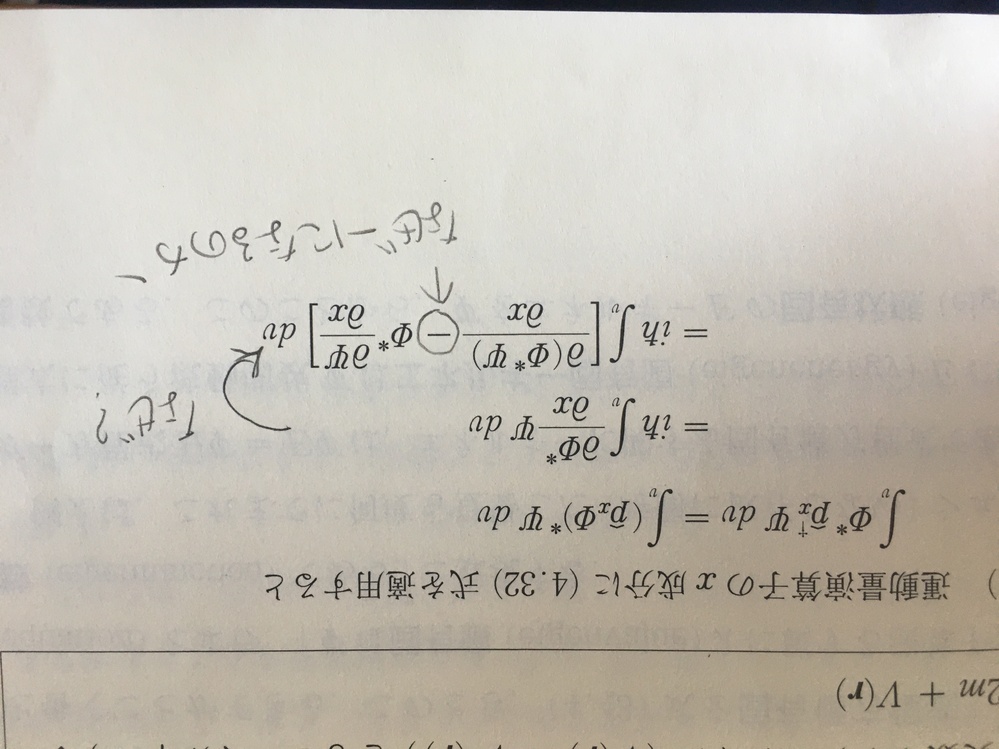 2m + V(r)
) 運動量演算子の x 成分に (4.32) 式を適用すると
∫_v Φ* p̂_x† Ψ dv = ∫_v (p̂_x Φ)* Ψ dv
= iħ ∫_v ∂Φ*/∂x Ψ dv
なぜ?
= iħ ∫_v [∂(Φ* Ψ)/∂x − Φ* ∂Ψ/∂x] dv
なぜ − になるのか